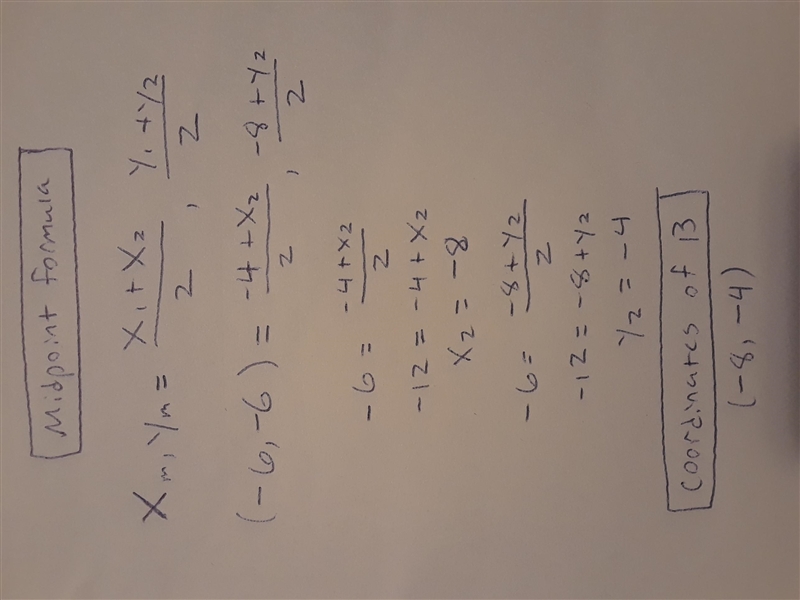 Midpoint formula
Xm, Ym = X1 + X2 / 2 , Y1 + Y2 / 2
(-6, -6) = -4 + X2 / 2 , -8 + Y2 / 2
-6 = -4 + X2 / 2
-12 = -4 + X2
X2 = -8
-6 = -8 + Y2 / 2
-12 = -8 + Y2
Y2 = -4
Coordinates of B
(-8, -4)